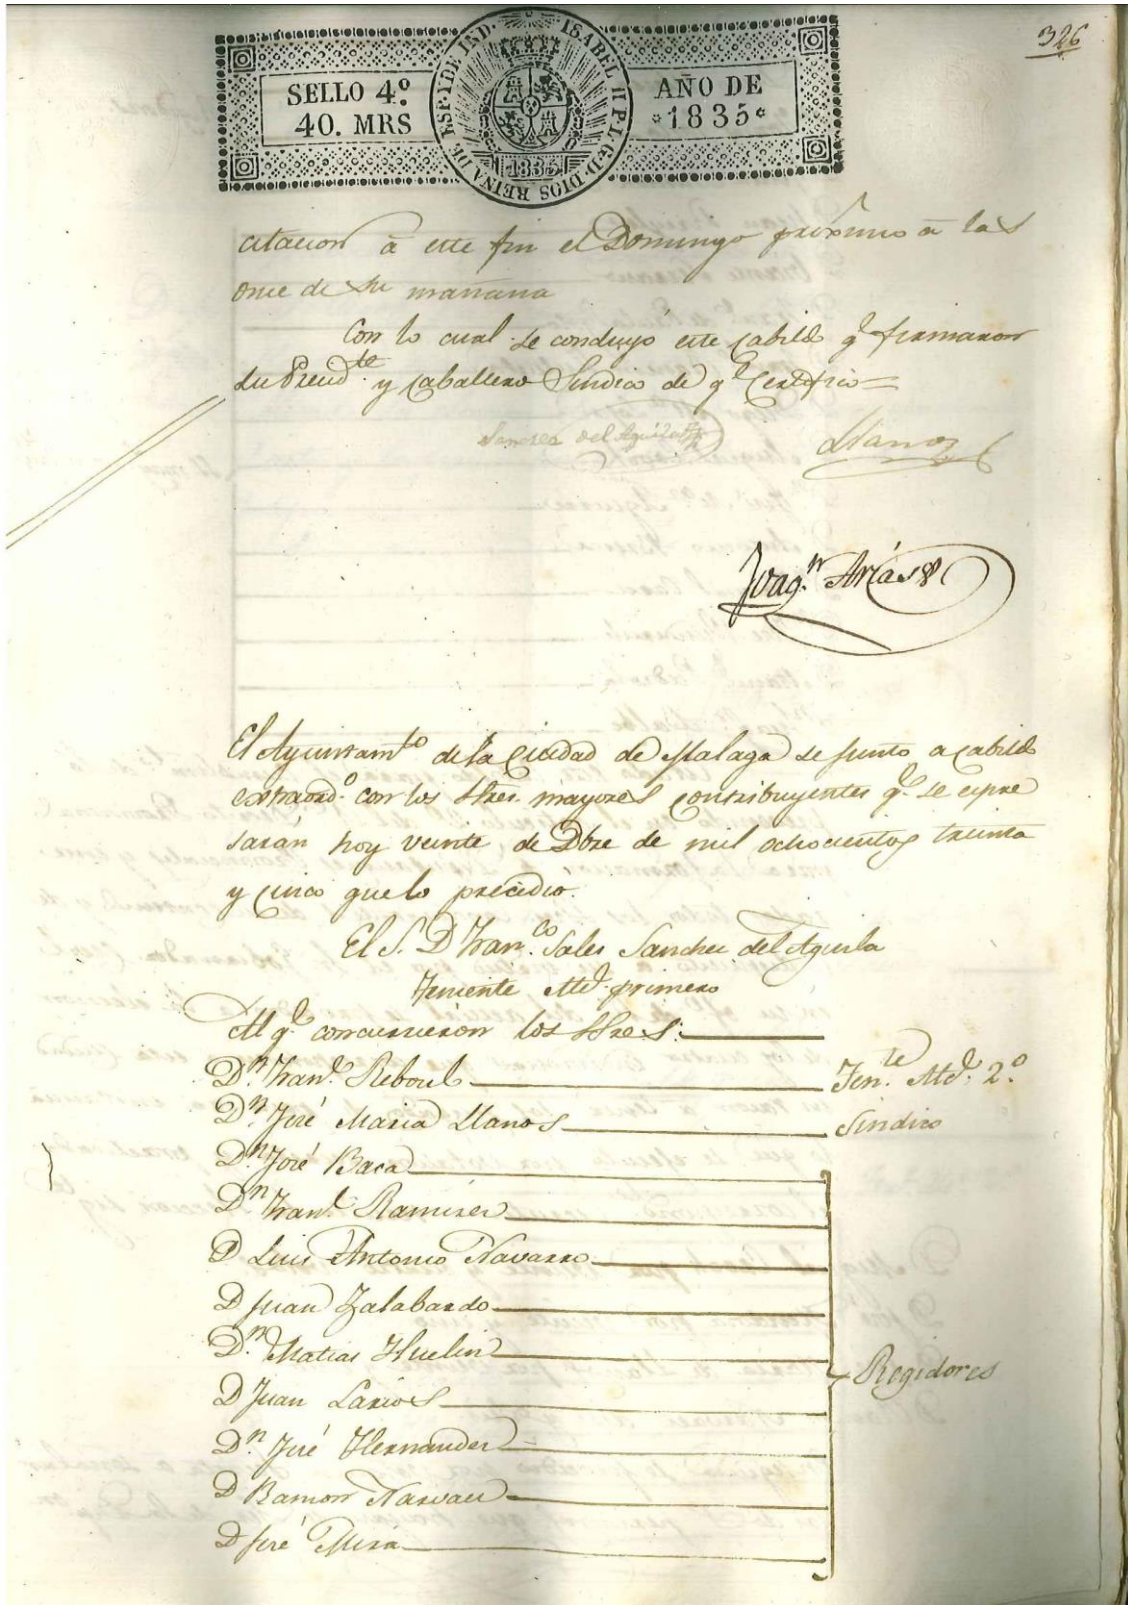 326
SELLO 4º
40. MRS
ISABEL II P.L.G.D. DIOS REINA DE ESP. Y DE IND.
1835
AÑO DE
1835
citacion á este fin el Domingo próximo á las
once de su mañana
Con lo cual se concluyó este cabildo q.e firmaron
su Presid.te y caballero Sindico de q.e Certifico=
Sanchez del Aguila
Llanos
Joaq.n Arias
El Ayuntam.to de la Ciudad de Malaga se junto a cabildo
extraord.o con los Sres. mayores contribuyentes q.e se expre
sarán hoy veinte de Dbre de mil ochocientos treinta
y cinco que lo precedió.
El S. D Fran.co Sales Sanchez del Aguila
Teniente Alc.e primero
Al q.e concurrieron los Sres:
D.n Fran.co Reboul Ten.te Alc.e 2.o
D.n José Maria Llanos Sindico
D.n José Baca
D.n Fran.co Ramirez
D Luis Antonio Navarro
D Juan Zalabardo
D.n Matias Huelin
Regidores
D Juan Larios
D.n José Hernandez
D Ramon Narvaez
D José Mira